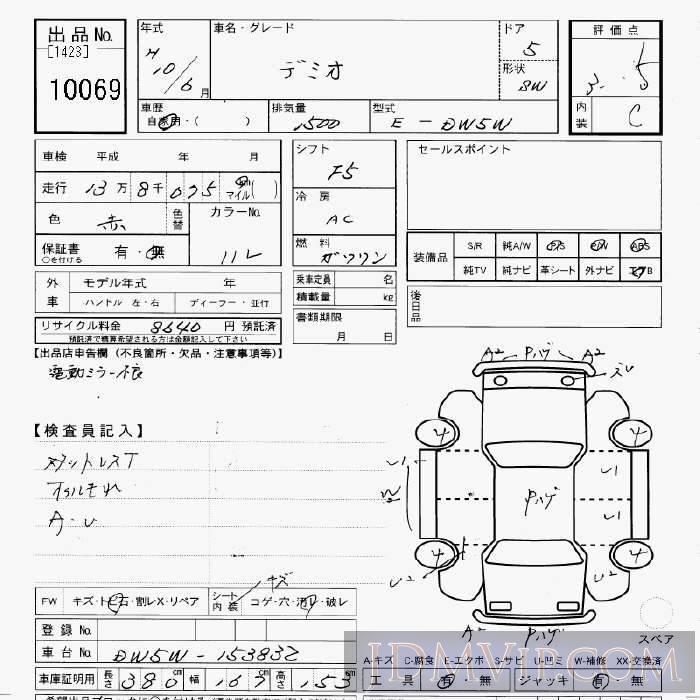 出品No. 年式 車名・グレード ドア 評価点
[1423] H 10/6月 デミオ 5 3.5
10069 形状 SW
車歴 排気量 型式 内装 C
自家用・( ) 1500 E-DW5W
車検 平成 年 月 シフト F5 セールスポイント
走行 13万8千075 マイル( ) 冷房 AC
色 赤 色替 カラーNo. 11L
保証書 有・無 燃料 ガソリン 装備品 S/R 純A/W P/S P/W ABS
○を付ける 純TV 純ナビ 革シート 外ナビ エアB
外車 モデル年式 年 乗車定員 名 後日品
ハンドル 左・右 ディーラー・並行 積載量 kg
リサイクル料金 8640 円 預託済 書類期限 月 日
預託済で精算希望される方は金額記入して下さい
【出品店申告欄 (不良箇所・欠品・注意事項等)】
電動ミラー不良
A2 Pハゲ A2
【検査員記入】
4 4
U1 U1
オイルもれ W2 Pハゲ
A・U U1
4 4
U2 U2
キズ
FW キズ・ト石・割レX・リペア シート内装 コゲ・穴・汚レ・破レ
A2 Pハゲ スペア
登録No.
車台No. DW5W-153832 A-キズ C-腐食 E-エクボ S-サビ U-凹ミ W-補修 XX-交換済
車庫証明用 長さ 380cm 幅 167cm 高さ 153 工具 有・無 ジャッキ 有・無
JDMVIP.COM